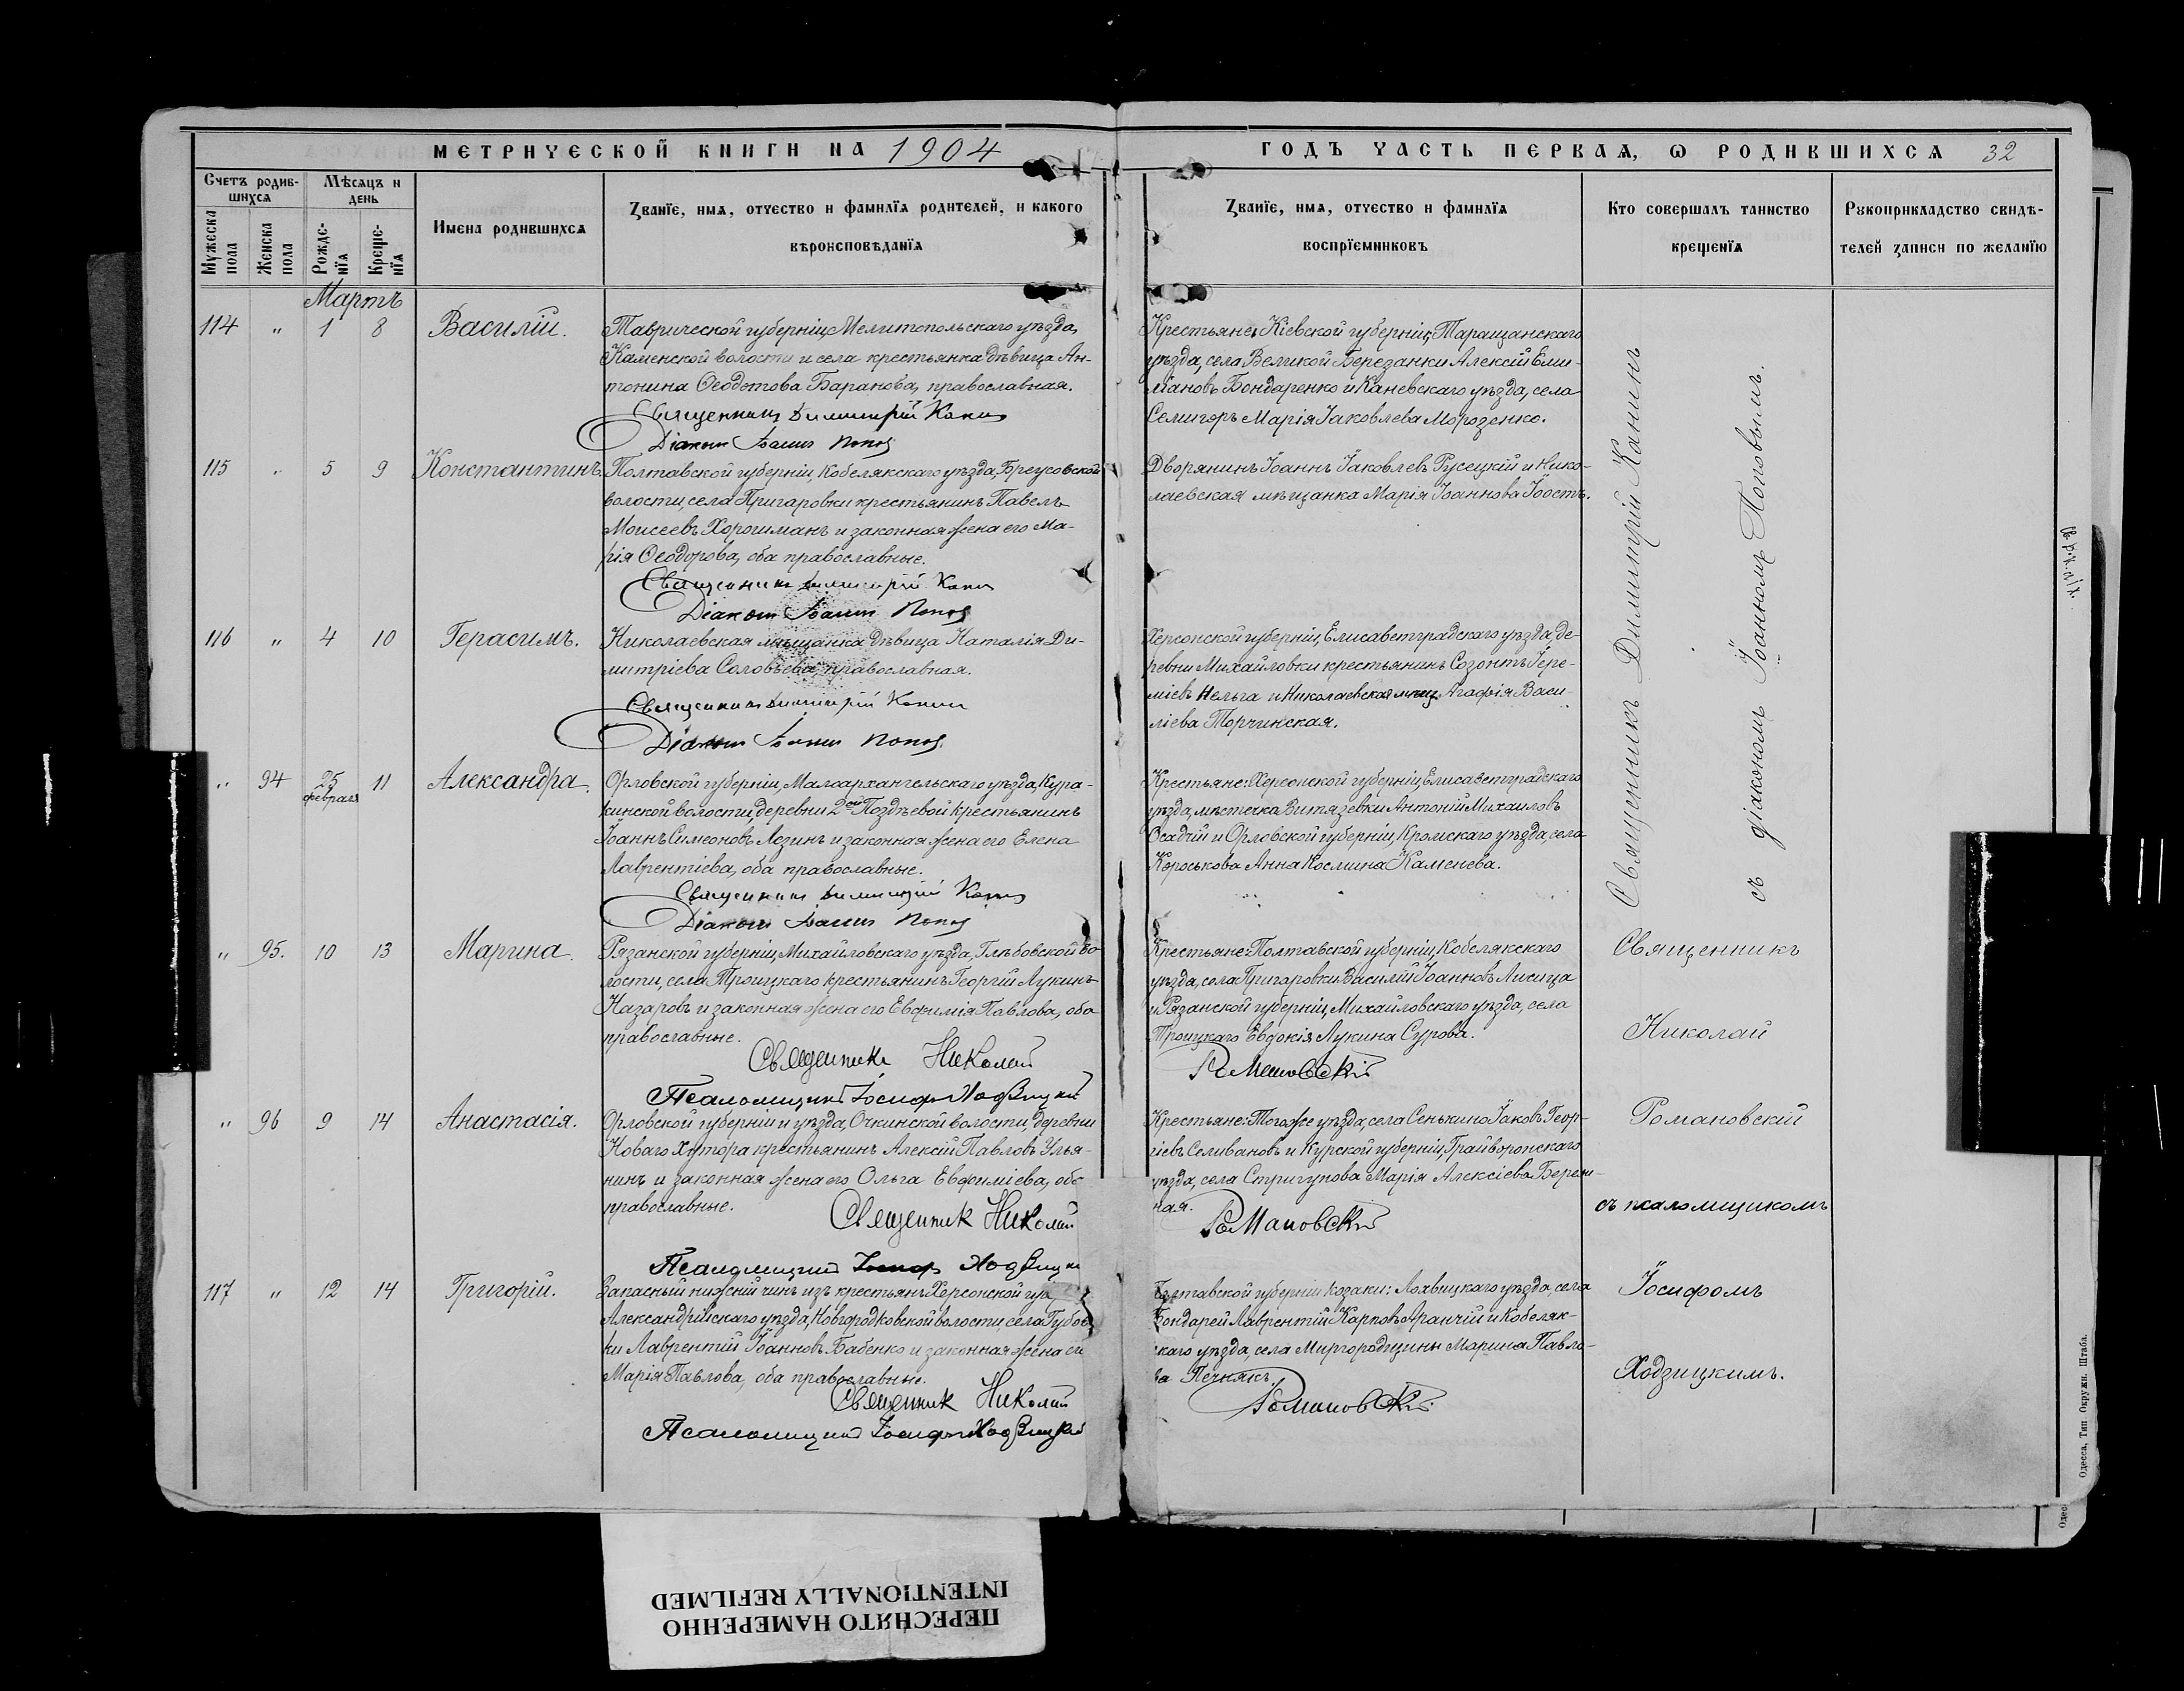 МЕТРИЧЕСКОЙ КНИГИ НА 1904
ГОДЪ ЧАСТЬ ПЕРВАЯ, Ѡ РОДИВШИХСЯ 32
Счетъ родив-
шихся
Мужеска пола
Женска пола
Мѣсяцъ и
день
Рожде-
нїя
Креще-
нїя
Имена родившихся
Званїе, имя, отчество и фамилїя родителей, и какого
вѣроисповѣданїя
Званїе, имя, отчество и фамилїя
воспрїемниковъ
Кто совершалъ таинство
крещенїя
Рукоприкладство свидѣ-
телей записи по желанїю
Мартъ
114 " 1 8 Василій.
Таврической губерніи, Мелитопольскаго уѣзда,
Каменской волости и села крестьянка дѣвица Ан-
тонина Ѳеодотова Баранова, православная.
Священникъ Димитрій Канинъ
Діаконъ Іоаннъ Поповъ
Крестьяне: Кіевской губерніи, Таращанскаго
уѣзда, села Великой Березанки Алексій Еми-
ліановъ Бондаренко и Каневскаго уѣзда, села
Семигоръ Марія Іаковлева Морозенко.
115 " 5 9 Константинъ.
Полтавской губерніи, Кобелякскаго уѣзда, Бреусовской
волости, села Пригаровки крестьянинъ Павелъ
Моисеевъ Хорошманъ и законная жена его Ма-
рія Ѳеодорова, оба православные.
Священникъ Димитрій Канинъ
Діаконъ Іоаннъ Поповъ
Дворянинъ Іоаннъ Іаковлевъ Русецкій и Нико-
лаевская мѣщанка Марія Іоаннова Іостъ.
116 " 4 10 Герасимъ.
Николаевская мѣщанка дѣвица Наталія Ди-
митріева Соловьева, православная.
Священникъ Димитрій Канинъ
Діаконъ Іоаннъ Поповъ
Херсонской губерніи, Елисаветградскаго уѣзда, де-
ревни Михайловки крестьянинъ Созонтъ Іере-
міевъ Нельга и Николаевская мѣщ. Агафія Васи-
ліева Торчинская.
" 94 25 февраля 11 Александра.
Орловской губерніи, Малоархангельскаго уѣзда, Кура-
кинской волости, деревни 2ой Поздѣевой крестьянинъ
Іоаннъ Симеоновъ Лезинъ и законная жена его Елена
Лаврентіева, оба православные.
Священникъ Димитрій Канинъ
Діаконъ Іоаннъ Поповъ
Крестьяне: Херсонской губерніи, Елисаветградскаго
уѣзда, мѣстечка Витязевки Антоній Михаиловъ
Осадчій и Орловской губерніи, Кромскаго уѣзда, села
Короськова Анна Космина Каменева.
Священникъ Димитрій Канинъ
съ діакономъ Іоанномъ Поповымъ.
" 95. 10 13 Марина.
Рязанской губерніи, Михайловскаго уѣзда, Глѣбовской во-
лости, села Троицкаго крестьянинъ Георгій Лукинъ
Назаровъ и законная жена его Евфимія Павлова, оба
православные.
Священникъ Николай
Романовскій
Псаломщикъ Іосифъ Ходзицкій
Крестьяне: Полтавской губерніи, Кобелякскаго
уѣзда, села Пригаровки Василій Іоанновъ Лисица
и Рязанской губерніи, Михайловскаго уѣзда, села
Троицкаго Евдокія Лукина Сурова.
" 96 9 14 Анастасія.
Орловской губерніи и уѣзда, Очкинской волости, деревни
Новаго Хутора крестьянинъ Алексій Павловъ Улья-
нинъ и законная жена его Ольга Евфиміева, оба
православные.
Священникъ Николай
Романовскій
Псаломщикъ Іосифъ Ходзицкій
Крестьяне: Тогоже уѣзда, села Сенькино Іаковъ Геор-
гіевъ Селивановъ и Курской губерніи, Грайворонскаго
уѣзда, села Стригунова Марія Алексіева Береж-
ная.
117 " 12 14 Григорій.
Запасный нижній чинъ изъ крестьянъ Херсонской губ.
Александрійскаго уѣзда, Новгородковской волости, села Губов-
ки Лаврентій Іоанновъ Бабенко и законная жена его
Марія Павлова, оба православные.
Священникъ Николай
Романовскій
Псаломщикъ Іосифъ Ходзицкій
Полтавской губерніи козаки: Лохвицкаго уѣзда, села
Бондарей Лаврентій Карповъ Аранчій и Кобеляк-
скаго уѣзда, села Миргородщины Марина Павло-
ва Печнякъ.
Священникъ
Николай
Романовскій
съ псаломщикомъ
Іосифомъ
Ходзицкимъ.
Одесса, Тип. Окружн. Штаба.
ПЕРЕСНЯТО НАМЕРЕННО
INTENTIONALLY REFILMED